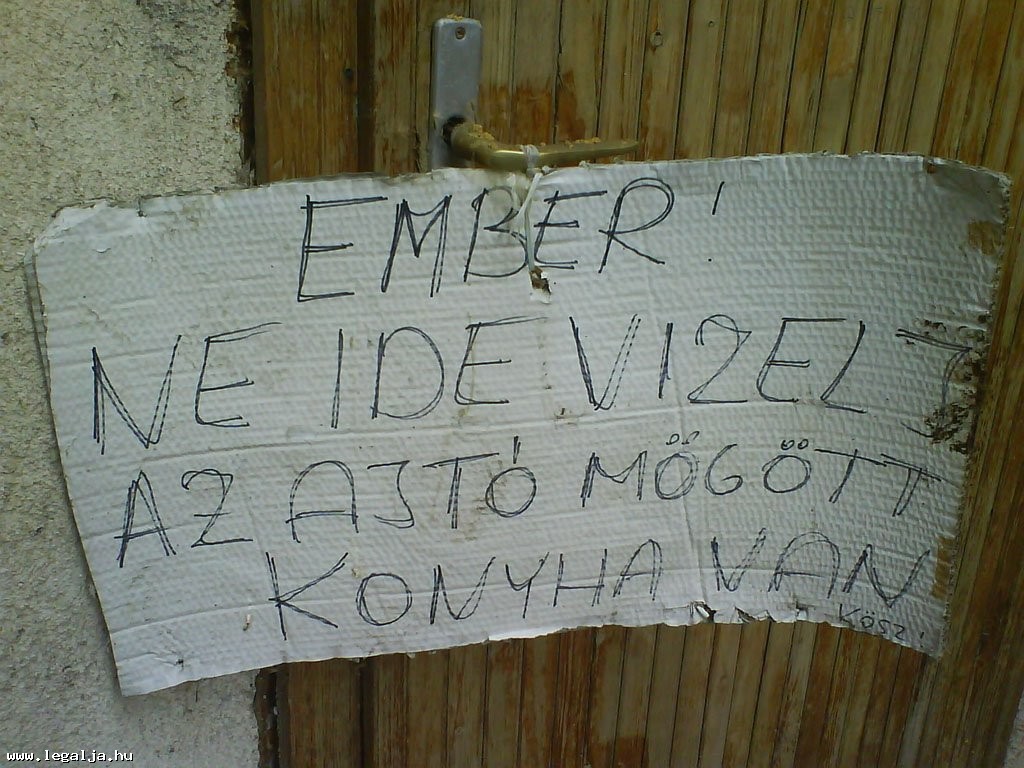 EMBER!
NE IDE VIZELJ
AZ AJTÓ MÖGÖTT
KONYHA VAN
KÖSZ!
www.legalja.hu